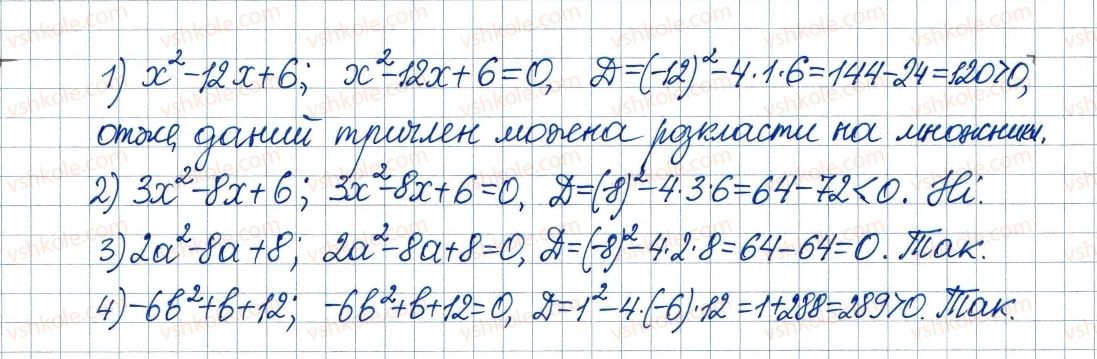 1) x²-12x+6; x²-12x+6=0, Д=(-12)²-4·1·6=144-24=120>0,
отже, даний тричлен можена розкласти на множники.
2) 3x²-8x+6; 3x²-8x+6=0, Д=(-8)²-4·3·6=64-72<0. Ні.
3) 2a²-8a+8; 2a²-8a+8=0, Д=(-8)²-4·2·8=64-64=0. Так.
4) -6b²+b+12; -6b²+b+12=0, Д=1²-4·(-6)·12=1+288=289>0. Так.